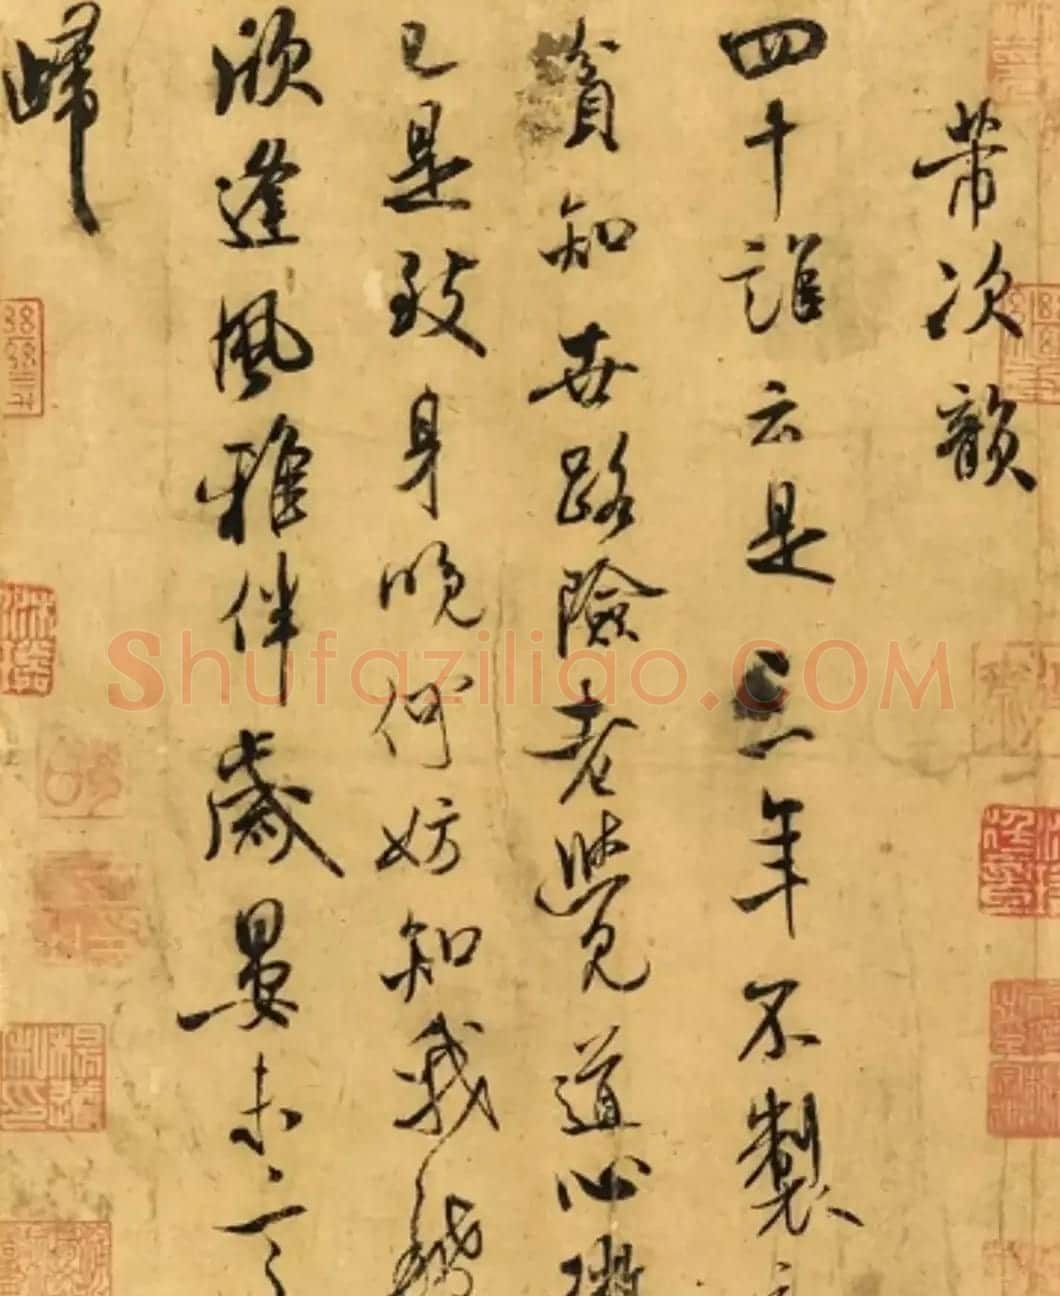 芾次韻
四十誰云是三年不製
貧知世路險老覺道心微
已是致身晚何妨知我稀
欣逢風雅伴歲晏未言
歸
Shufaziliao.COM